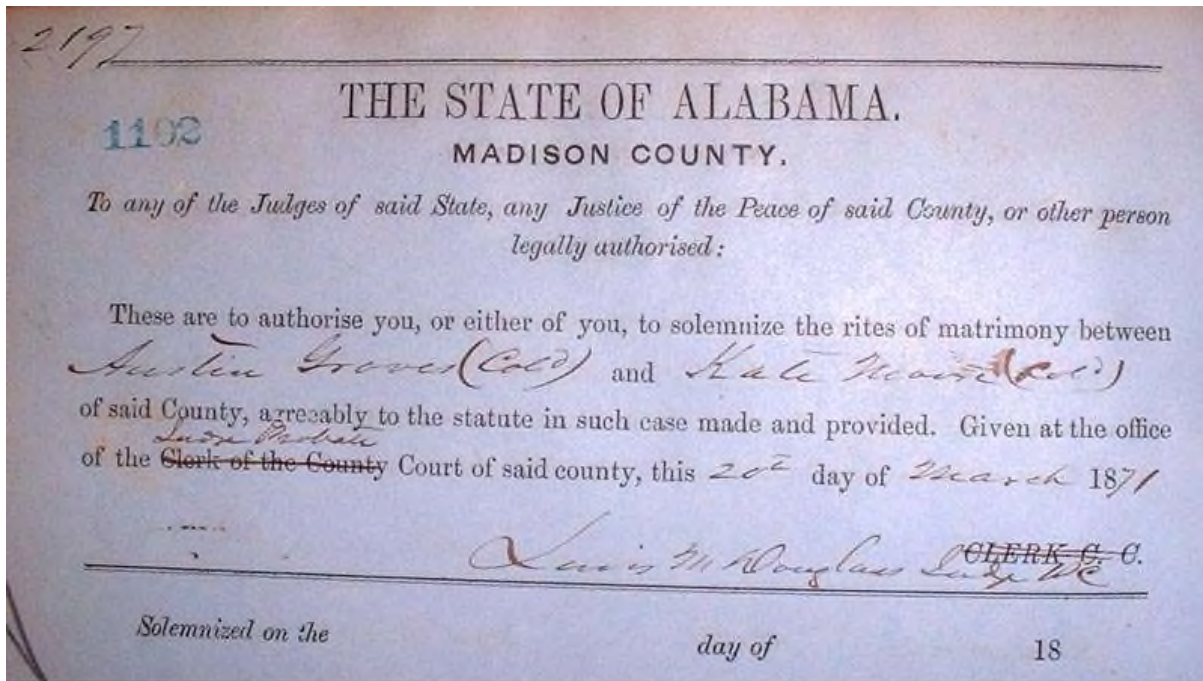 2197
THE STATE OF ALABAMA.
1102
MADISON COUNTY.
To any of the Judges of said State, any Justice of the Peace of said County, or other person
legally authorised:
These are to authorise you, or either of you, to solemnize the rites of matrimony between
Austin Groves (Cold) and Kate Moore (Cold)
of said County, agreeably to the statute in such case made and provided. Given at the office
Judge Probate
of the Clerk of the County Court of said county, this 20th day of March 1871
Lewis M Douglass Judge CLERK C. C.
Solemnized on the day of 18